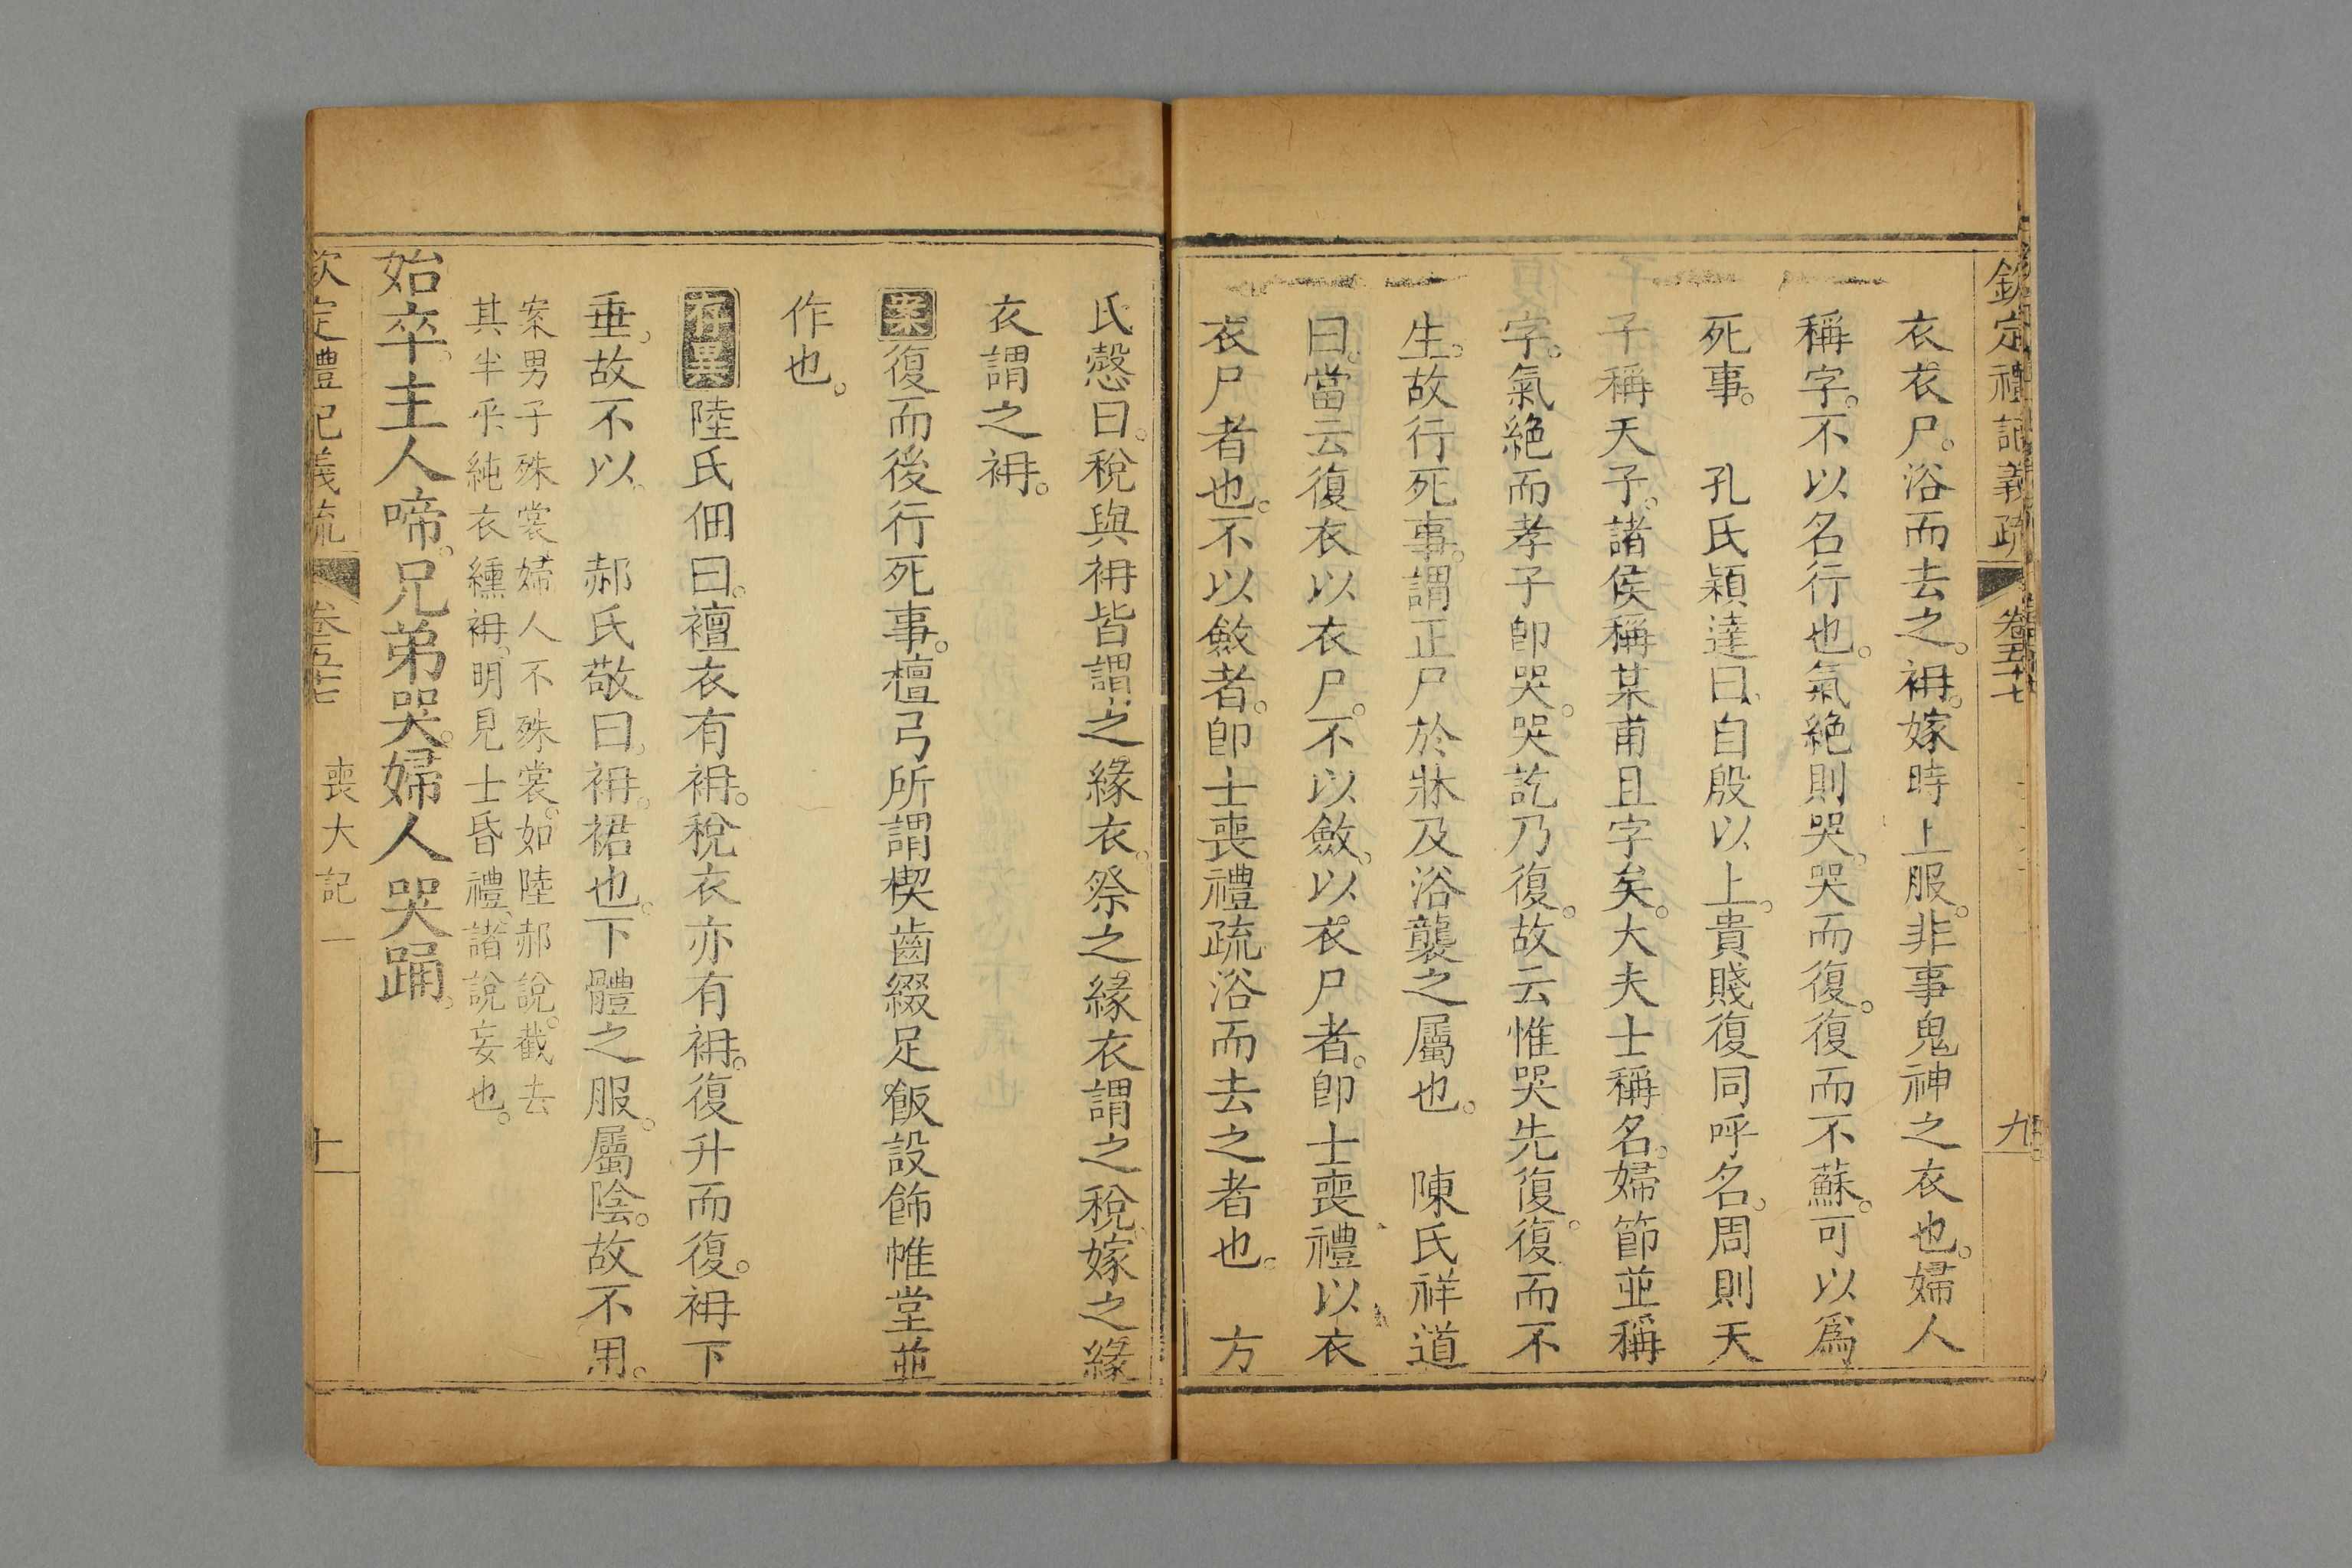 欽定禮記義疏 卷五十七 九
衣衣尸。浴而去之。袡。嫁時上服。非事鬼神之衣也。婦人
稱字。不以名行也。氣絶則哭。哭而復。復而不蘇。可以爲
死事。 孔氏穎達曰。自殷以上。貴賤復同呼名。周則天
子稱天子。諸侯稱某甫且字矣。大夫士稱名。婦節並稱
字。氣絶而孝子卽哭。哭訖乃復。故云惟哭先復。復而不
生。故行死事。謂正尸於牀及浴襲之屬也。 陳氏祥道
曰。當云復衣以衣尸。不以斂。以衣尸者。卽士喪禮以衣
衣尸者也。不以斂者。卽士喪禮疏浴而去之者也。 方
氏慤曰。稅與袡皆謂之緣衣。祭之緣衣謂之稅。嫁之緣
衣謂之袡。
案復而後行死事。檀弓所謂楔齒綴足飯設飾帷堂並
作也。
存異陸氏佃曰。襢衣有袡。稅衣亦有袡。復升而復。袡下
垂。故不以。 郝氏敬曰。袡。裙也。下體之服。屬陰。故不用。
案男子殊裳。婦人不殊裳。如陸郝說。截去
其半乎。純衣纁袡。明見士昏禮。諸說妄也。
始卒。主人啼。兄弟哭。婦人哭踊。
欽定禮記義疏 卷五十七 喪大記一 十